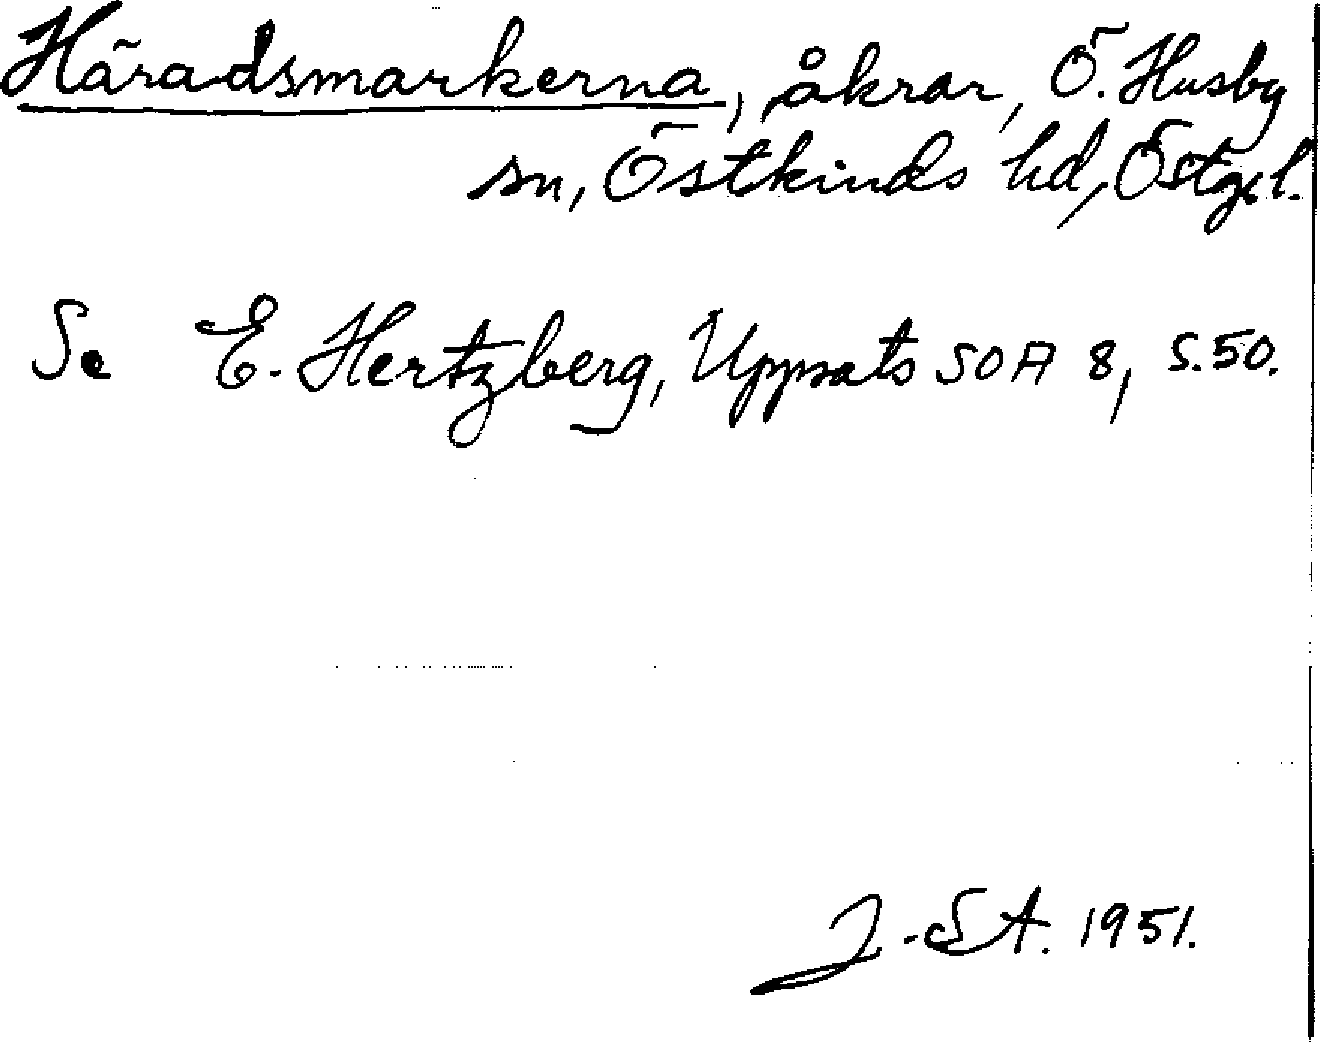 Häradsmarkerna, åkrar, Ö. Husby
sn, Östkinds hd, Östgl.
Se E. Hertzberg, Uppsats SOA 8, s. 50.
J. SA. 1951.